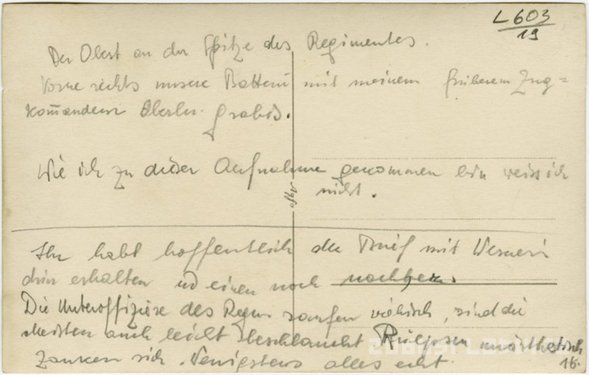 L 603
19
Der Oberst an der Spitze des Regimentes.
Vorne rechts unsere Batterie mit meinem früheren Zug=
kom̄andeur Oberltn. Grabs.
Wie ich zu dieser Aufnahme genommen bin weiss ich
nicht.
Ihr habt hoffentlich den Brief mit
drin erhalten und einen noch
Die Unteroffiziere des Regim. saufen viehisch, sind die
Meisten auch leicht Rülpsen unästhetisch
Zanken sich. Wenigstens alles echt.
16.